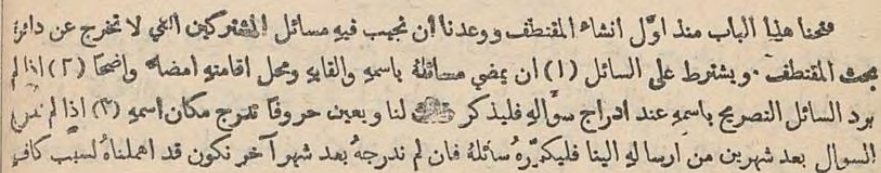 فتحنا هذا الباب منذ اول انشاء المقتطف ووعدنا ان نجيب فيهِ مسائل المشتركين التي لا تخرج عن دائرة
بحث المقتطف. ويشترط على السائل (١) ان يمضي مسائلهُ باسمهِ والقابهِ ومحل اقامتهِ امضاء واضحًا (٢) اذا لم
يرد السائل التصريح باسمهِ عند ادراج سوَّالهِ فليذكر ذلك لنا ويعين حروفًا تدرج مكان اسمهِ (٣) اذا لم ندرج
السوال بعد شهرين من ارسالهِ الينا فليكرّرهُ سائلهُ فان لم ندرجهُ بعد شهر آخر نكون قد اهملناهُ لسبب كافٍ